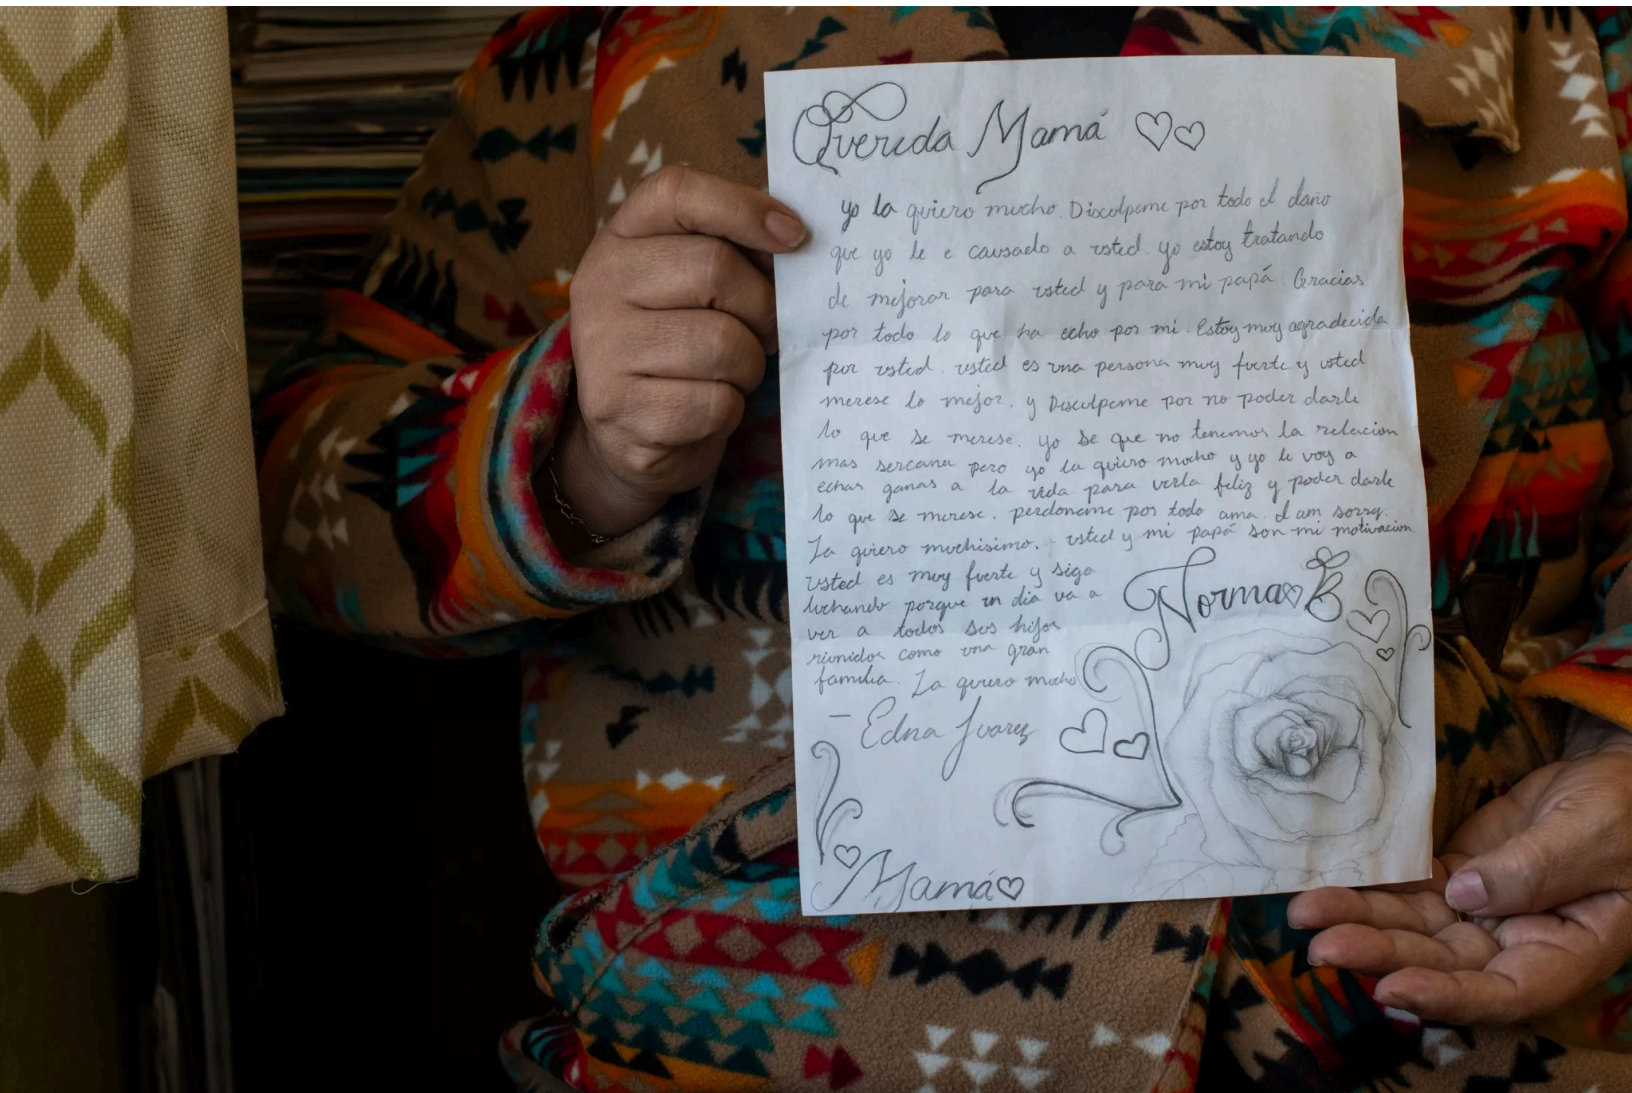 Querida Mamá
yo la quiero mucho. Disculpeme por todo el daño
que yo le e causado a usted. yo estoy tratando
de mejorar para usted y para mi papá. Gracias
por todo lo que ha echo por mi. Estoy muy agradecida
por usted. usted es una persona muy fuerte y usted
merese lo mejor. y Disculpeme por no poder darle
lo que se merese. yo se que no tenemos la relacion
mas sercana pero yo la quiero mucho y yo le voy a
echar ganas a la vida para verla feliz y poder darle
lo que se merese. perdoneme por todo ama. I am sorry.
La quiero muchisimo. usted y mi papá son mi motivacion.
Usted es muy fuerte y siga
luchando porque un dia va a
ver a todos sus hijos
riunidos como una gran
familia. La quiero mucho
– Edna Juarez
Norma B
Mamá